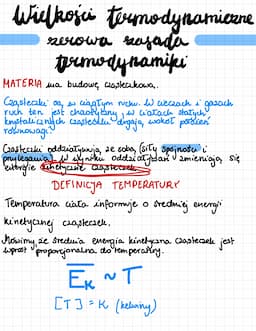 Wielkości termodynamiczne
zerowa zasada
termodynamiki
MATERIA ma budowę cząsteczkową.
Cząsteczki są w ciągłym ruchu. W cieczach i gazach
ruch ten jest chaotyczny, w ciałach stałych
krystalicznych cząsteczki drgają wokół położeń
równowagi.
Cząsteczki oddziaływują ze sobą (siły spójności i
przylegania). W wyniku oddziaływań zmieniają się
energie kinetyczne cząsteczek.
DEFINICJA TEMPERATURY
Temperatura ciała informuje o średniej energii
kinetycznej cząsteczek.
Mówimy że średnia energia kinetyczna cząsteczek jest
wprost proporcjonalna do temperatury.
Eₖ ~ T
[T] = K (kelwiny)